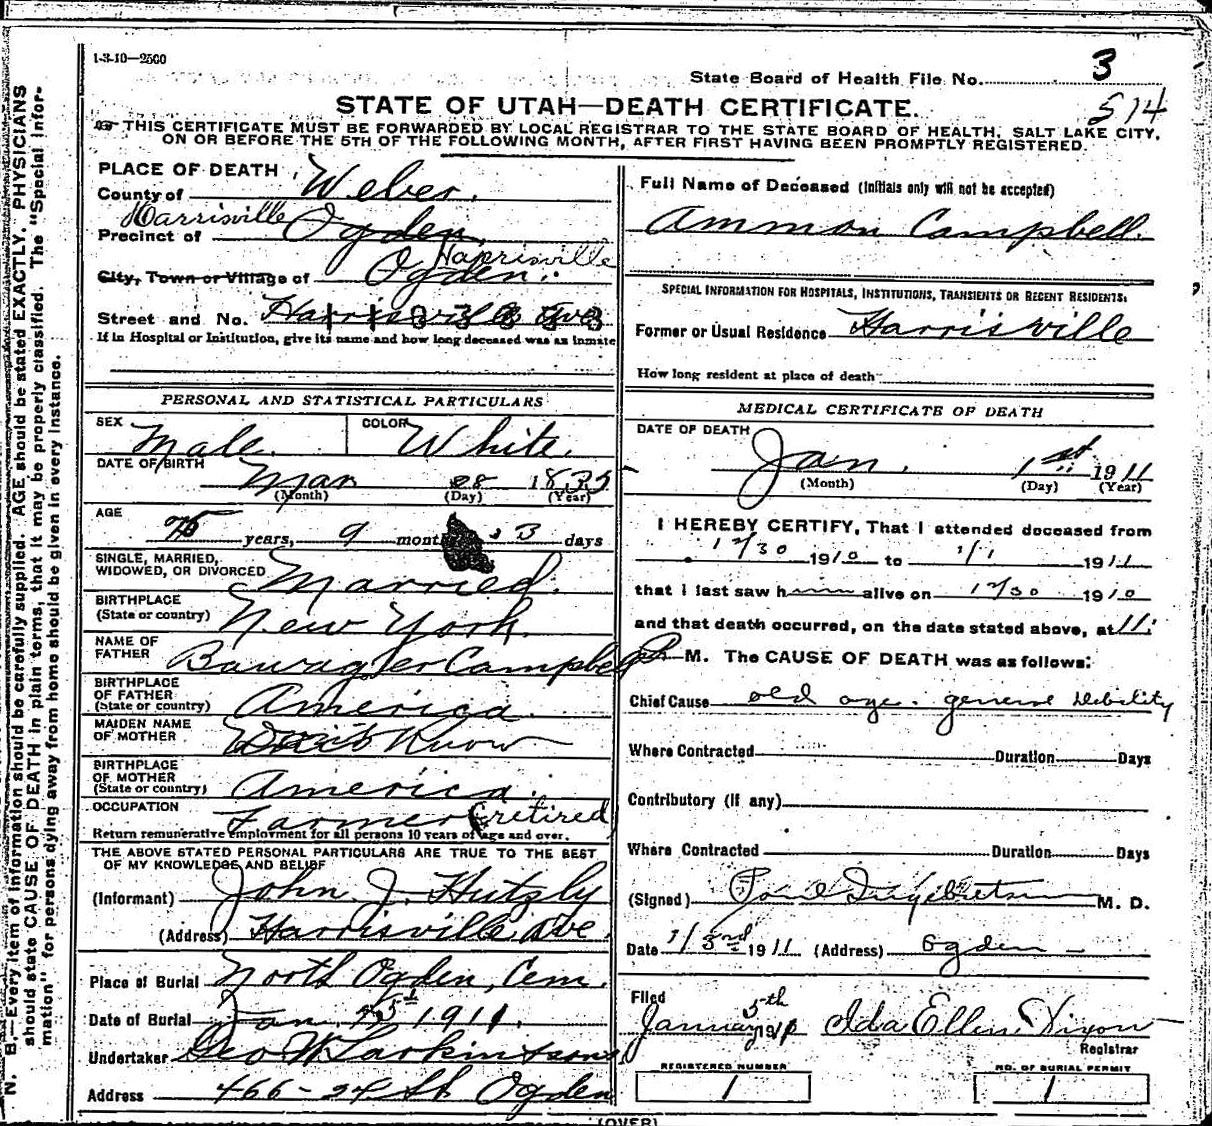 1-3-10—2500
State Board of Health File No. 3
514
STATE OF UTAH—DEATH CERTIFICATE.
THIS CERTIFICATE MUST BE FORWARDED BY LOCAL REGISTRAR TO THE STATE BOARD OF HEALTH, SALT LAKE CITY,
ON OR BEFORE THE 5TH OF THE FOLLOWING MONTH, AFTER FIRST HAVING BEEN PROMPTLY REGISTERED.
N. B.—Every item of information should be carefully supplied. AGE should be stated EXACTLY. PHYSICIANS
should state CAUSE OF DEATH in plain terms, that it may be properly classified. The "Special Infor-
mation" for persons dying away from home should be given in every instance.
PLACE OF DEATH
County of Weber.
Harrisville
Precinct of Ogden.
Harrisville
City, Town or Village of Ogden.
Street and No. Harrisville Ave
If in Hospital or Institution, give its name and how long deceased was an inmate
PERSONAL AND STATISTICAL PARTICULARS
SEX Male. COLOR White.
DATE OF BIRTH Mar 28 1835
(Month) (Day) (Year)
AGE 75 years, 9 months, 3 days
SINGLE, MARRIED,
WIDOWED, OR DIVORCED Married.
BIRTHPLACE
(State or country) New York.
NAME OF
FATHER Campbell
BIRTHPLACE
OF FATHER
(State or country) America.
MAIDEN NAME
OF MOTHER Don't Know
BIRTHPLACE
OF MOTHER
(State or country) America.
OCCUPATION Farmer (retired
Return remunerative employment for all persons 10 years of age and over.
THE ABOVE STATED PERSONAL PARTICULARS ARE TRUE TO THE BEST
OF MY KNOWLEDGE AND BELIEF
(Informant) John J. Hutzly
(Address) Harrisville Ave.
Place of Burial North Ogden, Cem.
Date of Burial Jan. 5th 1911.
Undertaker Geo W Larkin & sons.
Address 466-24 St Ogden
Full Name of Deceased (Initials only will not be accepted)
Ammon Campbell.
SPECIAL INFORMATION FOR HOSPITALS, INSTITUTIONS, TRANSIENTS OR RECENT RESIDENTS:
Former or Usual Residence Harrisville
How long resident at place of death
MEDICAL CERTIFICATE OF DEATH
DATE OF DEATH
Jan. 1st 1911
(Month) (Day) (Year)
I HEREBY CERTIFY, That I attended deceased from
12/30 1910 to 1/1 1911
that I last saw h alive on 12/30 1910
and that death occurred, on the date stated above, at 11:
P M. The CAUSE OF DEATH was as follows:
Chief Cause old age. general debility
Where Contracted Duration Days
Contributory (If any)
Where Contracted Duration Days
(Signed) M. D.
Date 1/3rd 1911 (Address) Ogden
Filed
January 5th 191 Ida Ellen Dixon
Registrar
REGISTERED NUMBER
1
NO. OF BURIAL PERMIT
1
(OVER)